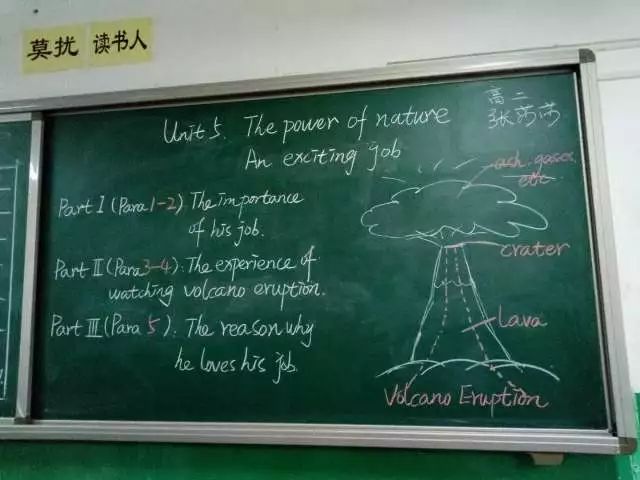 莫扰 读书人
高二
张莎莎
Unit 5. The power of nature
An exciting job
Part I (Para 1-2). The importance
of his job.
Part II (Para 3-4). The experience of
watching volcano eruption.
Part III (Para 5). The reason why
he loves his job.
ash. gases
etc
crater
Lava
Volcano Eruption